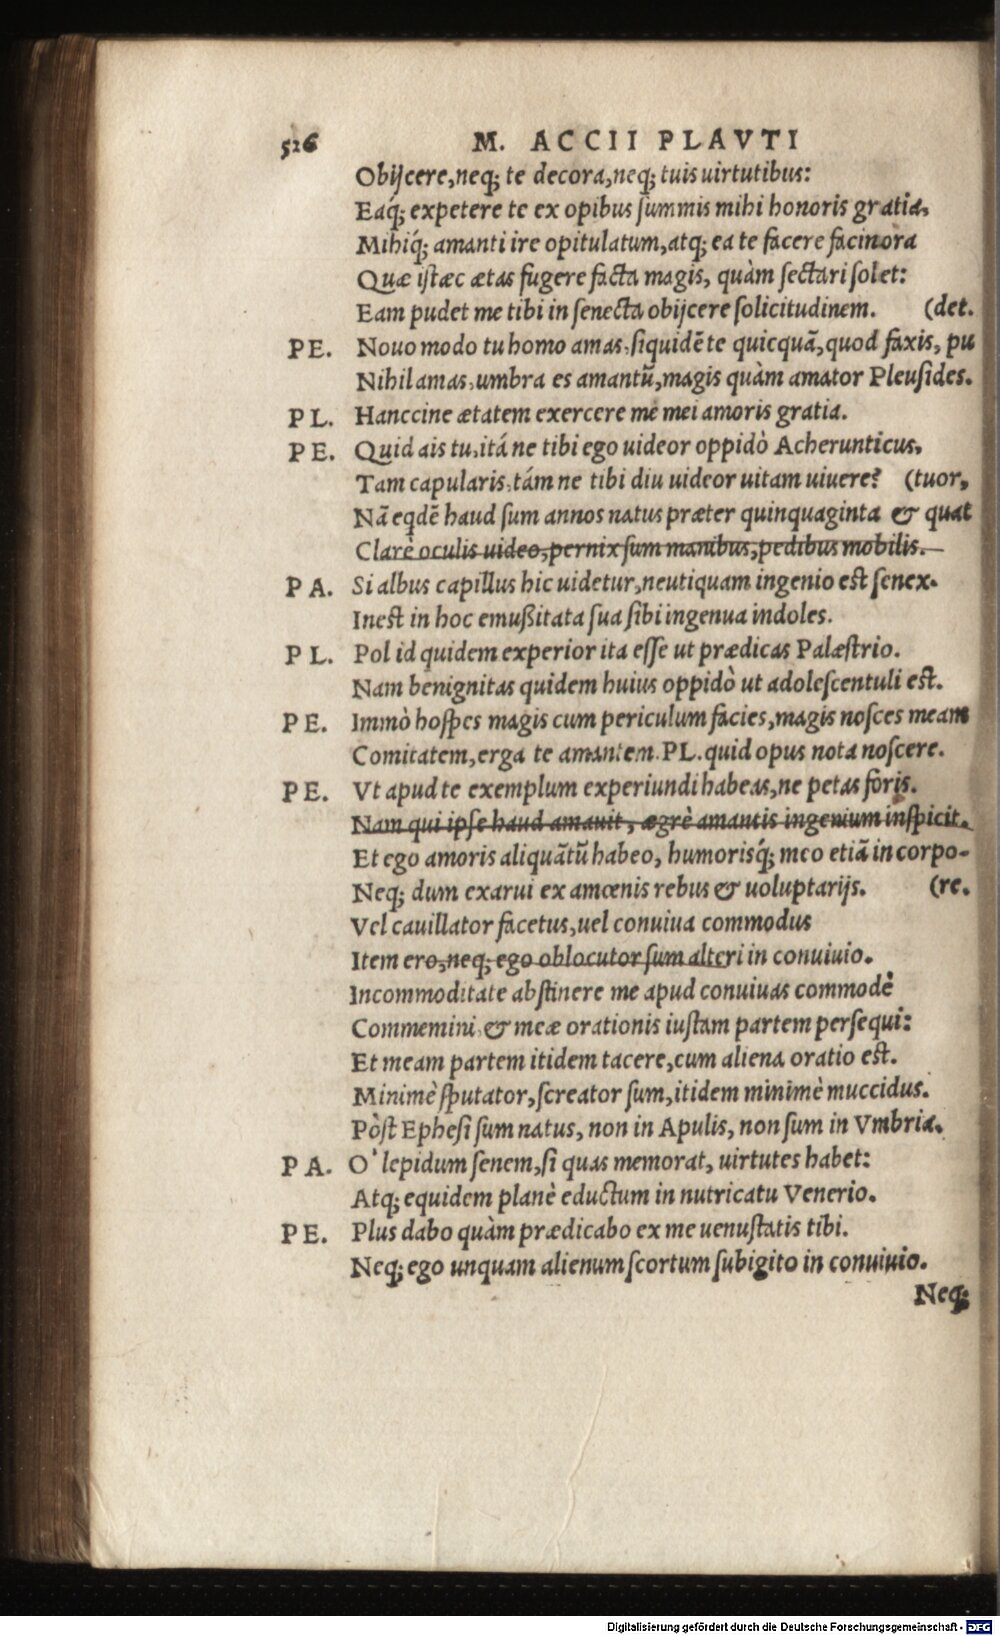 526 M. ACCII PLAVTI
Obijcere, neq; te decora, neq; tuis uirtutibus:
Eaq́; expetere te ex opibus summis mihi honoris gratia,
Mihiq́; amanti ire opitulatum, atq; ea te facere facinora
Quæ istæc ætas fugere facta magis, quàm sectari solet:
Eam pudet me tibi in senecta obijcere solicitudinem. (det.
PE. Nouo modo tu homo amas, siquidē te quicquã, quod faxis, pu
Nihil amas, umbra es amantũ, magis quàm amator Pleusides.
PL. Hanccine ætatem exercere me mei amoris gratia.
PE. Quid ais tu, itá ne tibi ego uideor oppidò Acherunticus,
Tam capularis, tám ne tibi diu uideor uitam uiuere? (tuor,
Nã eqdē haud sum annos natus præter quinquaginta & quat
Clarè oculis uideo, pernix sum manibus, pedibus mobilis.
PA. Si albus capillus hic uidetur, neutiquam ingenio est senex.
Inest in hoc emußitata sua sibi ingenua indoles.
PL. Pol id quidem experior ita esse ut prædicas Palæstrio.
Nam benignitas quidem huius oppidò ut adolescentuli est.
PE. Immò hospes magis cum periculum facies, magis nosces meam
Comitatem, erga te amantem. PL. quid opus nota noscere.
PE. Vt apud te exemplum experiundi habeas, ne petas foris.
Nam qui ipse haud amauit, ægrè amantis ingenium inspicit.
Et ego amoris aliquãtũ habeo, humorisq́; meo etiã in corpo-
Neq; dum exarui ex amœnis rebus & uoluptarijs. (re.
Vel cauillator facetus, uel conuiua commodus
Item ero, neq; ego oblocutor sum alteri in conuiuio.
Incommoditate abstinere me apud conuiuas commodè
Commemini, & meæ orationis iustam partem persequi:
Et meam partem itidem tacere, cum aliena oratio est.
Minimè sputator, screator sum, itidem minimè muccidus.
Pòst Ephesi sum natus, non in Apulis, non sum in Vmbria.
PA. O' lepidum senem, si quas memorat, uirtutes habet:
Atq; equidem planè eductum in nutricatu Venerio.
PE. Plus dabo quàm prædicabo ex me uenustatis tibi.
Neq; ego unquam alienum scortum subigito in conuiuio.
Neq;
Digitalisierung gefördert durch die Deutsche Forschungsgemeinschaft - DFG